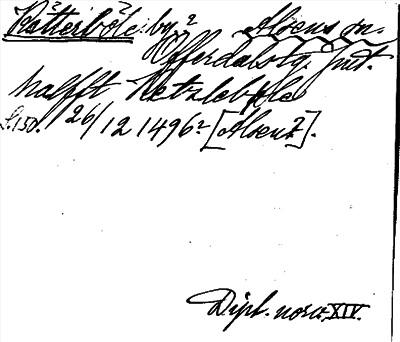 Kätterböle: by² Alvens m.
Offerdals tg. Jmt.
halfft Ketzleböle
S. 150. 26/12 1496² [Alsen?].
Dipl. norv. XIV.